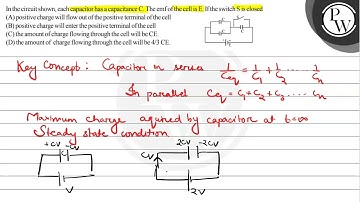 In the circuit shown, each capacitor has a capacitance C. The emf of the cell is E. If the switch S is closed
(A) positive charge will flow out of the positive terminal of the cell
(B) positive charge will enter the positive terminal of the cell
(C) the amount of charge flowing through the cell will be CE.
(D) the amount of charge flowing through the cell will be 4/3 CE.
Key Concept: Capacitor in series 1/Ceq = 1/C1 + 1/C2 ... 1/Cn
In parallel Ceq = C1 + C2 + C3 ..... Cn
Maximum charge aquired by capacitor at t=∞
Steady state condition
+CV -CV
V
2CV -2CV
CV
2V